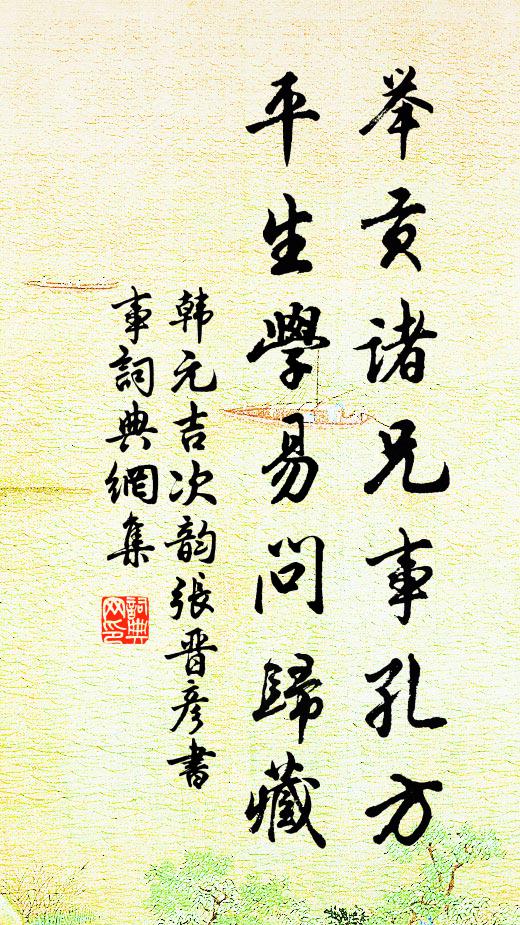 举贡诸兄事孔方
平生學易问歸藏
韩元吉次韵張晋彦書
事詞典網集
詞典网印